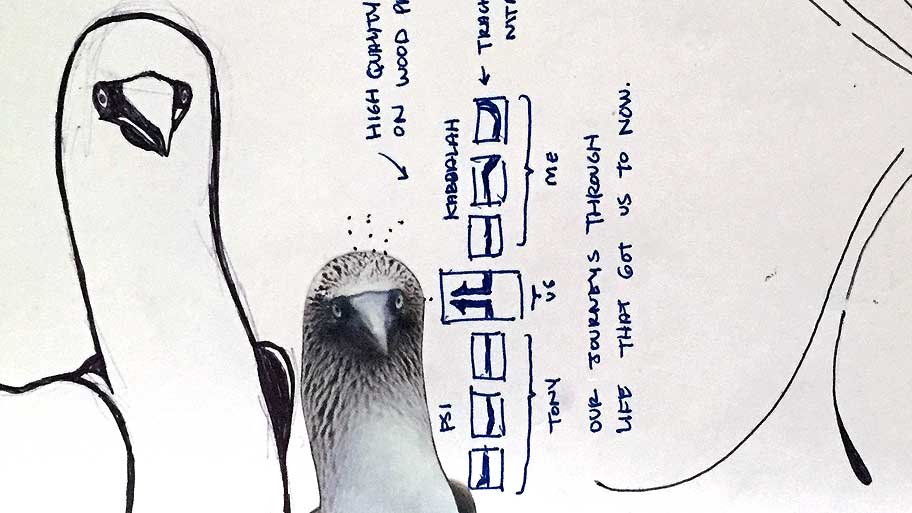 HIGH QUALITY
ON WOOD
PSI KABBALAH
TONY US ME
OUR JOURNEYS THROUGH
LIFE THAT GOT US TO NOW.